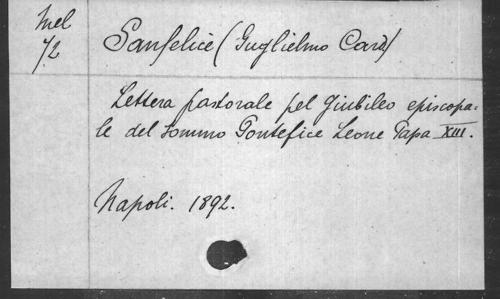 Mel
72
Sanfelice (Guglielmo Card)
Lettera pastorale pel Giubileo episcopa-
le del Sommo Pontefice Leone Papa XIII.
Napoli. 1892.